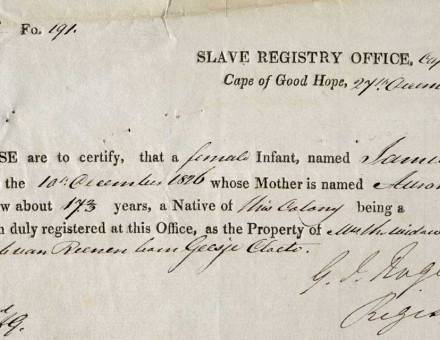 Fo. 191.
SLAVE REGISTRY OFFICE, Cap
Cape of Good Hope, 27th Decem
SE are to certify, that a female Infant, named
the 10th December 1826 whose Mother is named
w about 17¾ years, a Native of this Colony being a
n duly registered at this Office, as the Property of Mrs. the widow
van Reenen born Geesje Cloete.
G. J. Roge
Regis